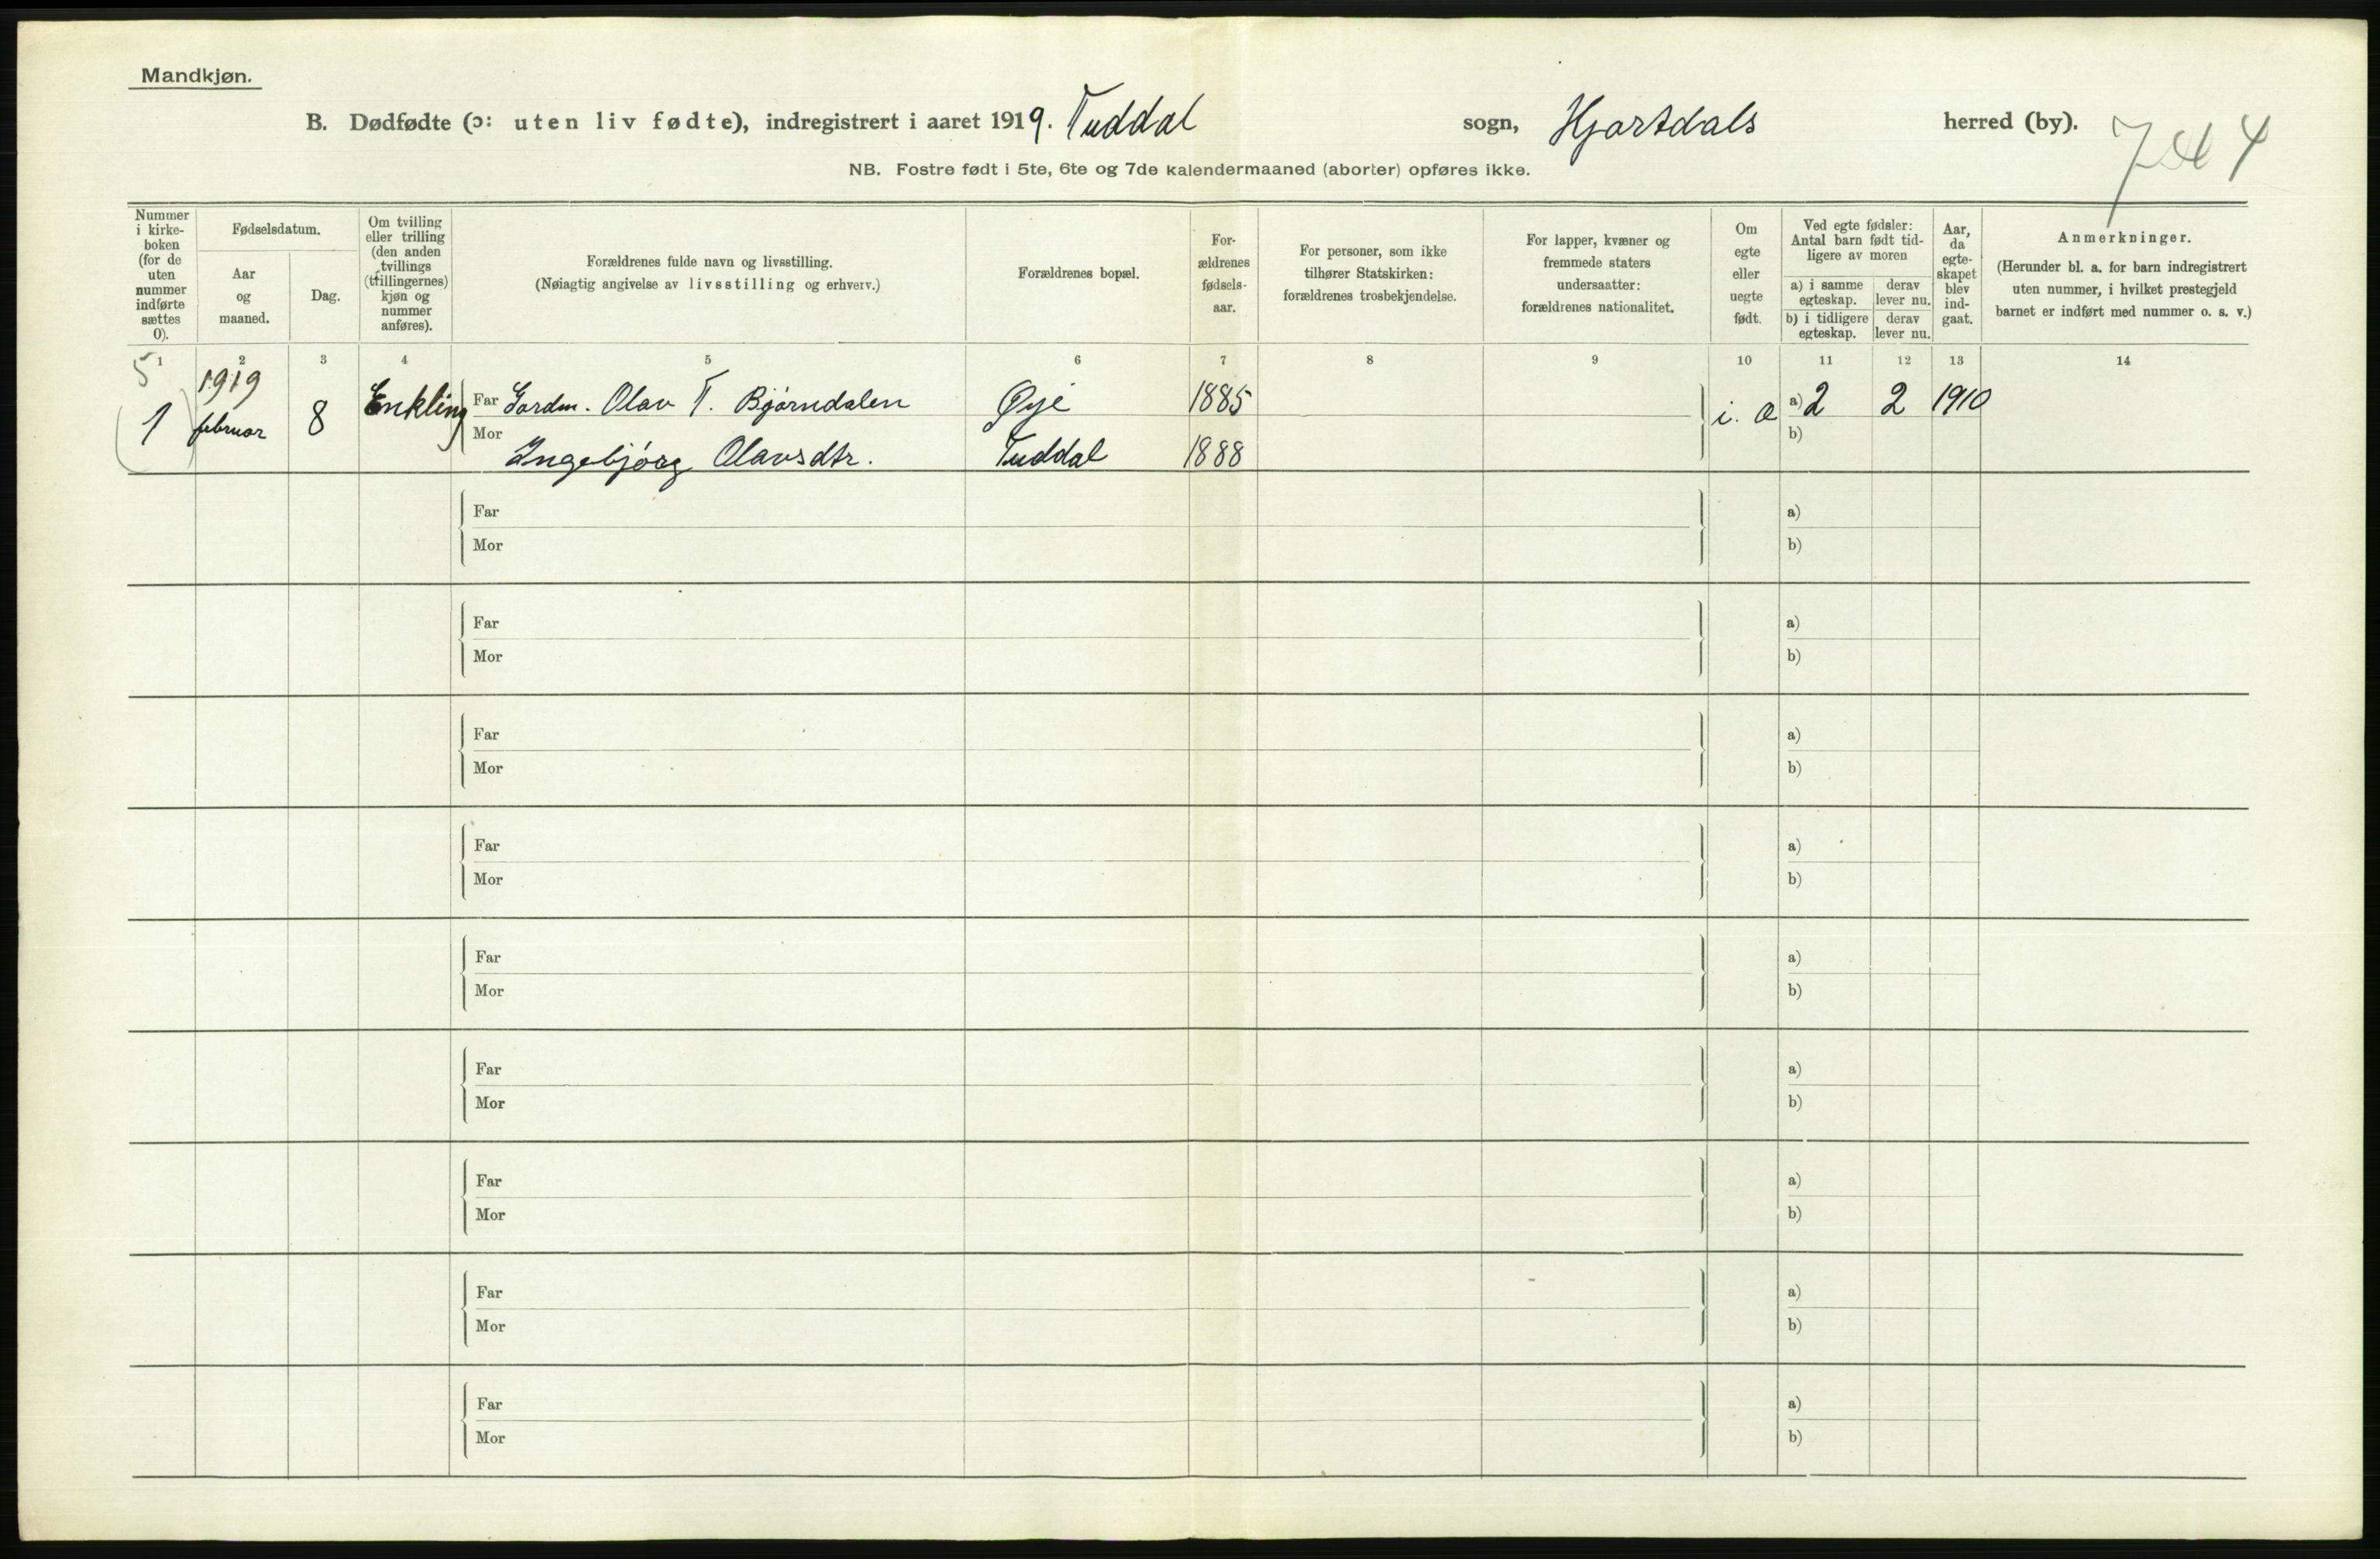 Mandkjøn.
B. Dødfødte (ɔ: uten liv fødte), indregistrert i aaret 1919. Tuddal sogn, Hjartdals herred (by).
744
NB. Fostre født i 5te, 6te og 7de kalendermaaned (aborter) opføres ikke.
Nummer i kirke- boken (for de uten nummer indførte sættes 0).
Fødselsdatum.
Aar og maaned.
Dag.
Om tvilling eller trilling (den anden tvillings (trillingernes) kjøn og nummer anføres).
Forældrenes fulde navn og livsstilling.
(Nøiagtig angivelse av livsstilling og erhverv.)
Forældrenes bopæl.
For- ældrenes fødsels- aar.
For personer, som ikke tilhører Statskirken: forældrenes trosbekjendelse.
For lapper, kvæner og fremmede staters undersaatter: forældrenes nationalitet.
Om egte eller uegte født.
Ved egte fødsler: Antal barn født tid- ligere av moren
a) i samme egteskap.
derav lever nu.
b) i tidligere egteskap.
derav lever nu.
Aar, da egte- skapet blev ind- gaat.
Anmerkninger.
(Herunder bl. a. for barn indregistrert uten nummer, i hvilket prestegjeld barnet er indført med nummer o. s. v.)
1 2 3 4 5 6 7 8 9 10 11 12 13 14
5
1919
1 februar 8 Enkling Far Gardm. Olav T. Bjørndalen Øye 1885 i. a) 2 2 1910
Mor Ingebjørg Olavsdtr. Tuddal 1888 b)
Far a)
Mor b)
Far a)
Mor b)
Far a)
Mor b)
Far a)
Mor b)
Far a)
Mor b)
Far a)
Mor b)
Far a)
Mor b)
Far a)
Mor b)
Far a)
Mor b)